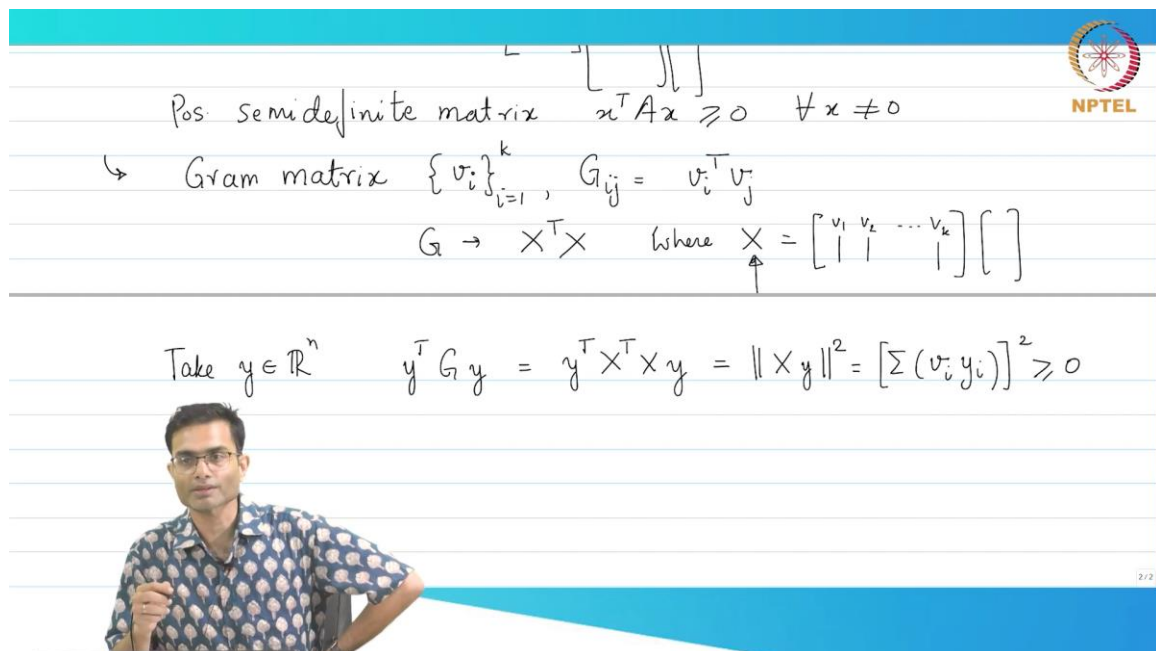 NPTEL
Pos. semidefinite matrix xᵀAx ≥ 0 ∀ x ≠ 0
↳ Gram matrix {vᵢ}ᵢ₌₁ᵏ, Gᵢⱼ = vᵢᵀvⱼ
G → XᵀX where X = [v₁ v₂ ... vₖ] [ ]
Take y ∈ ℝⁿ yᵀGy = yᵀXᵀXy = ||Xy||² = [Σ(vᵢyᵢ)]² ≥ 0
2/2